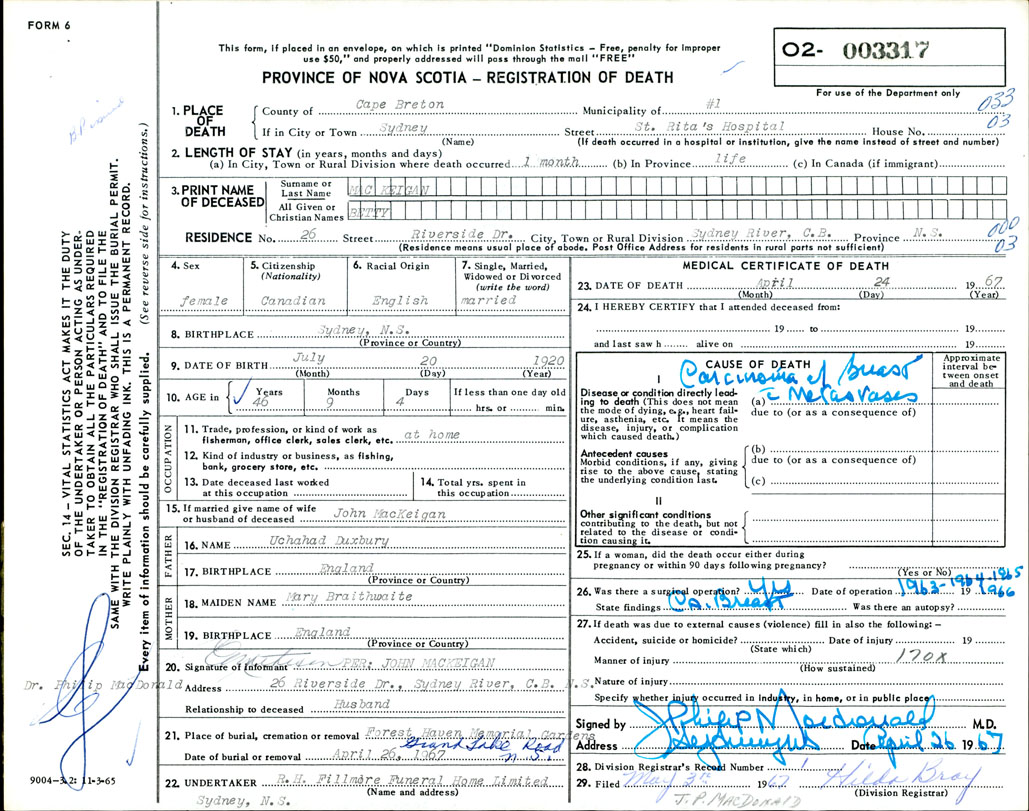 FORM 6
This form, if placed in an envelope, on which is printed "Dominion Statistics – Free, penalty for improper
use $50," and properly addressed will pass through the mail "FREE"
PROVINCE OF NOVA SCOTIA – REGISTRATION OF DEATH
O2- 003317
For use of the Department only
033
03
1. PLACE OF DEATH
County of Cape Breton Municipality of #1
If in City or Town Sydney Street St. Rita's Hospital House No.
(Name) (If death occurred in a hospital or institution, give the name instead of street and number)
2. LENGTH OF STAY (in years, months and days)
(a) In City, Town or Rural Division where death occurred 1 month (b) In Province life (c) In Canada (if immigrant)
3. PRINT NAME OF DECEASED
Surname or Last Name MAC KEIGAN
All Given or Christian Names BETTY
000
03
RESIDENCE No. 26 Street Riverside Dr. City, Town or Rural Division Sydney River, C.B. Province N.S.
(Residence means usual place of abode. Post Office Address for residents in rural parts not sufficient)
SEC. 14 – VITAL STATISTICS ACT MAKES IT THE DUTY
OF THE UNDERTAKER OR PERSON ACTING AS UNDER-
TAKER TO OBTAIN ALL THE PARTICULARS REQUIRED
IN THE "REGISTRATION OF DEATH" AND TO FILE THE
SAME WITH THE DIVISION REGISTRAR WHO SHALL ISSUE THE BURIAL PERMIT.
WRITE PLAINLY WITH UNFADING INK. THIS IS A PERMANENT RECORD.
Every item of information should be carefully supplied. (See reverse side for instructions.)
4. Sex
female
5. Citizenship
(Nationality)
Canadian
6. Racial Origin
English
7. Single, Married,
Widowed or Divorced
(write the word)
married
8. BIRTHPLACE Sydney, N.S.
(Province or Country)
9. DATE OF BIRTH July 20 1920
(Month) (Day) (Year)
10. AGE in
Years Months Days If less than one day old
46 9 4 hrs. or min.
OCCUPATION
11. Trade, profession, or kind of work as
fisherman, office clerk, sales clerk, etc. at home
12. Kind of industry or business, as fishing,
bank, grocery store, etc.
13. Date deceased last worked
at this occupation
14. Total yrs. spent in
this occupation
15. If married give name of wife
or husband of deceased John MacKeigan
FATHER
16. NAME Uchahad Duxbury
17. BIRTHPLACE England
(Province or Country)
MOTHER
18. MAIDEN NAME Mary Braithwaite
19. BIRTHPLACE England
(Province or Country)
20. Signature of Informant PER: JOHN MACKEIGAN
Dr. Philip MacDonald
Address 26 Riverside Dr., Sydney River, C.B. N.S.
Relationship to deceased Husband
21. Place of burial, cremation or removal Forest Haven Memorial Gardens
Grand Lake Road
N.S.
Date of burial or removal April 26, 1967
22. UNDERTAKER R.H. Fillmore Funeral Home Limited
(Name and address)
Sydney, N.S.
9004-3.2: 11-3-65
MEDICAL CERTIFICATE OF DEATH
23. DATE OF DEATH April 24 1967
(Month) (Day) (Year)
24. I HEREBY CERTIFY that I attended deceased from:
19 to 19
and last saw h alive on 19
CAUSE OF DEATH
Approximate
interval be-
tween onset
and death
I
Disease or condition directly lead-
ing to death (This does not mean
the mode of dying, e.g., heart fail-
ure, asthenia, etc. It means the
disease, injury, or complication
which caused death.)
Carcinoma of Breast
(a) c̄ Metastases
due to (or as a consequence of)
Antecedent causes
Morbid conditions, if any, giving
rise to the above cause, stating
the underlying condition last.
(b)
due to (or as a consequence of)
(c)
II
Other significant conditions
contributing to the death, but not
related to the disease or condi-
tion causing it.
25. If a woman, did the death occur either during
pregnancy or within 90 days following pregnancy?
(Yes or No)
26. Was there a surgical operation? Yes Date of operation 1963-1964-1965
19 1966
State findings Ca. Breast Was there an autopsy?
27. If death was due to external causes (violence) fill in also the following: –
Accident, suicide or homicide? Date of injury 19
(State which)
Manner of injury 170X
(How sustained)
Nature of injury
Specify whether injury occurred in industry, in home, or in public place
Signed by J Philip Macdonald M.D.
Address Sydney N.S. Date April 26 1967
28. Division Registrar's Record Number
29. Filed May 3rd 1967 Hilda Bray
(Division Registrar)
J. P. MACDONALD